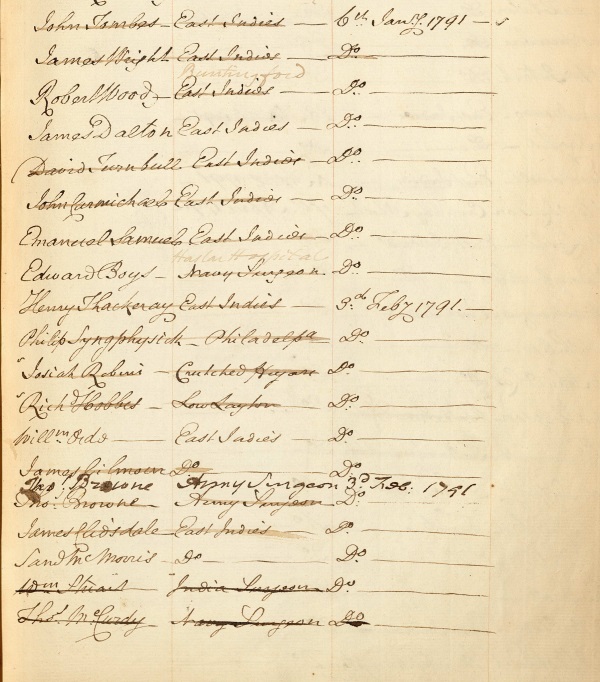 John Tombes East Indies — 6th Jany. 1791 —
James Wright East Indies — Do.
Huntingford
Robert Wood — East Indies — Do.
James Dalton East Indies — Do.
David Turnbull East Indies — Do.
John Carmichael East Indies — Do.
Emanuel Samuel East Indies — Do.
Haslar Hospital
Edward Boys — Navy Surgeon Do.
Henry Thackeray East Indies — 3d. Feby 1791. —
Philip Syng physick — Philadelpa Do.
Josiah Robins — Crutched Do.
Richd Hobbes — Low Layton — Do.
Willm Odd — East Indies — Do.
James Gilmour Do. Do.
Thos. Browne Army Surgeon 3d. Feb: 1791
Thos. Browne — Army Surgeon Do.
James Clidsdale — East Indies — Do.
Morris — Do — Do
Wm Stuart — India Surgeon Do.
Thos. McCurdy — Navy Surgeon Do